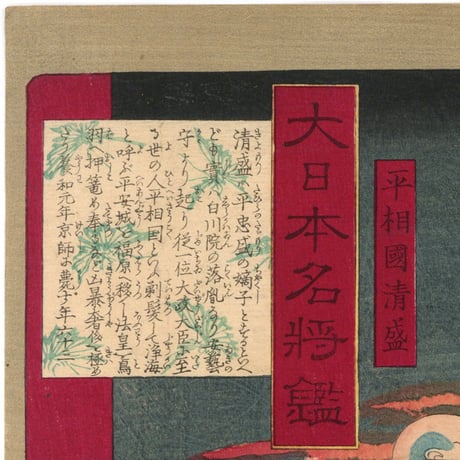 平相國清盛
大日本名將鑑
清盛ハ平忠盛の嫡子とするといへ
ども實ハ白川院の落胤なり安藝
守より起り従一位大政大臣に至
る世の人平相国といふ剃髪して浄海
と呼ぶ平安城を福原へ移し法皇を鳥
羽へ押篭め奉るなど凶暴奢侈を極め
たり養和元年京師に薨ず年六十二